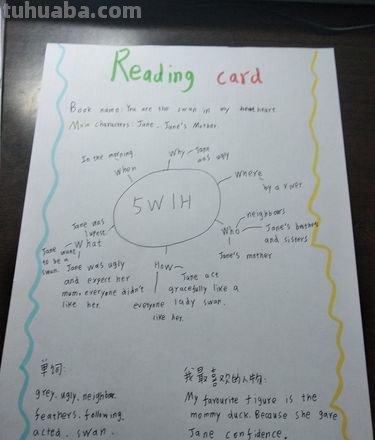 tuhuaba.com
Reading card
Book name: You are the swan in my heart
Main characters: Jane, Jane's Mother.
In the morning
When
Why
Jane was ugly
Where
by a river.
5W1H
Who
neighbours
Jane's brothers
and sisters
Jane's mother
Jane was
What
Jane want
to be a
swan.
Jane was ugly
and expect her
mum, everyone didn't
like her.
How
Jane act
gracefully like a
lady swan.
everyone
like her.
单词:
grey. ugly. neighbor.
feathers. following.
acted. swan.
我最喜欢的人物:
My favourite figure is the
mommy duck. Because she gave
Jane confidence.